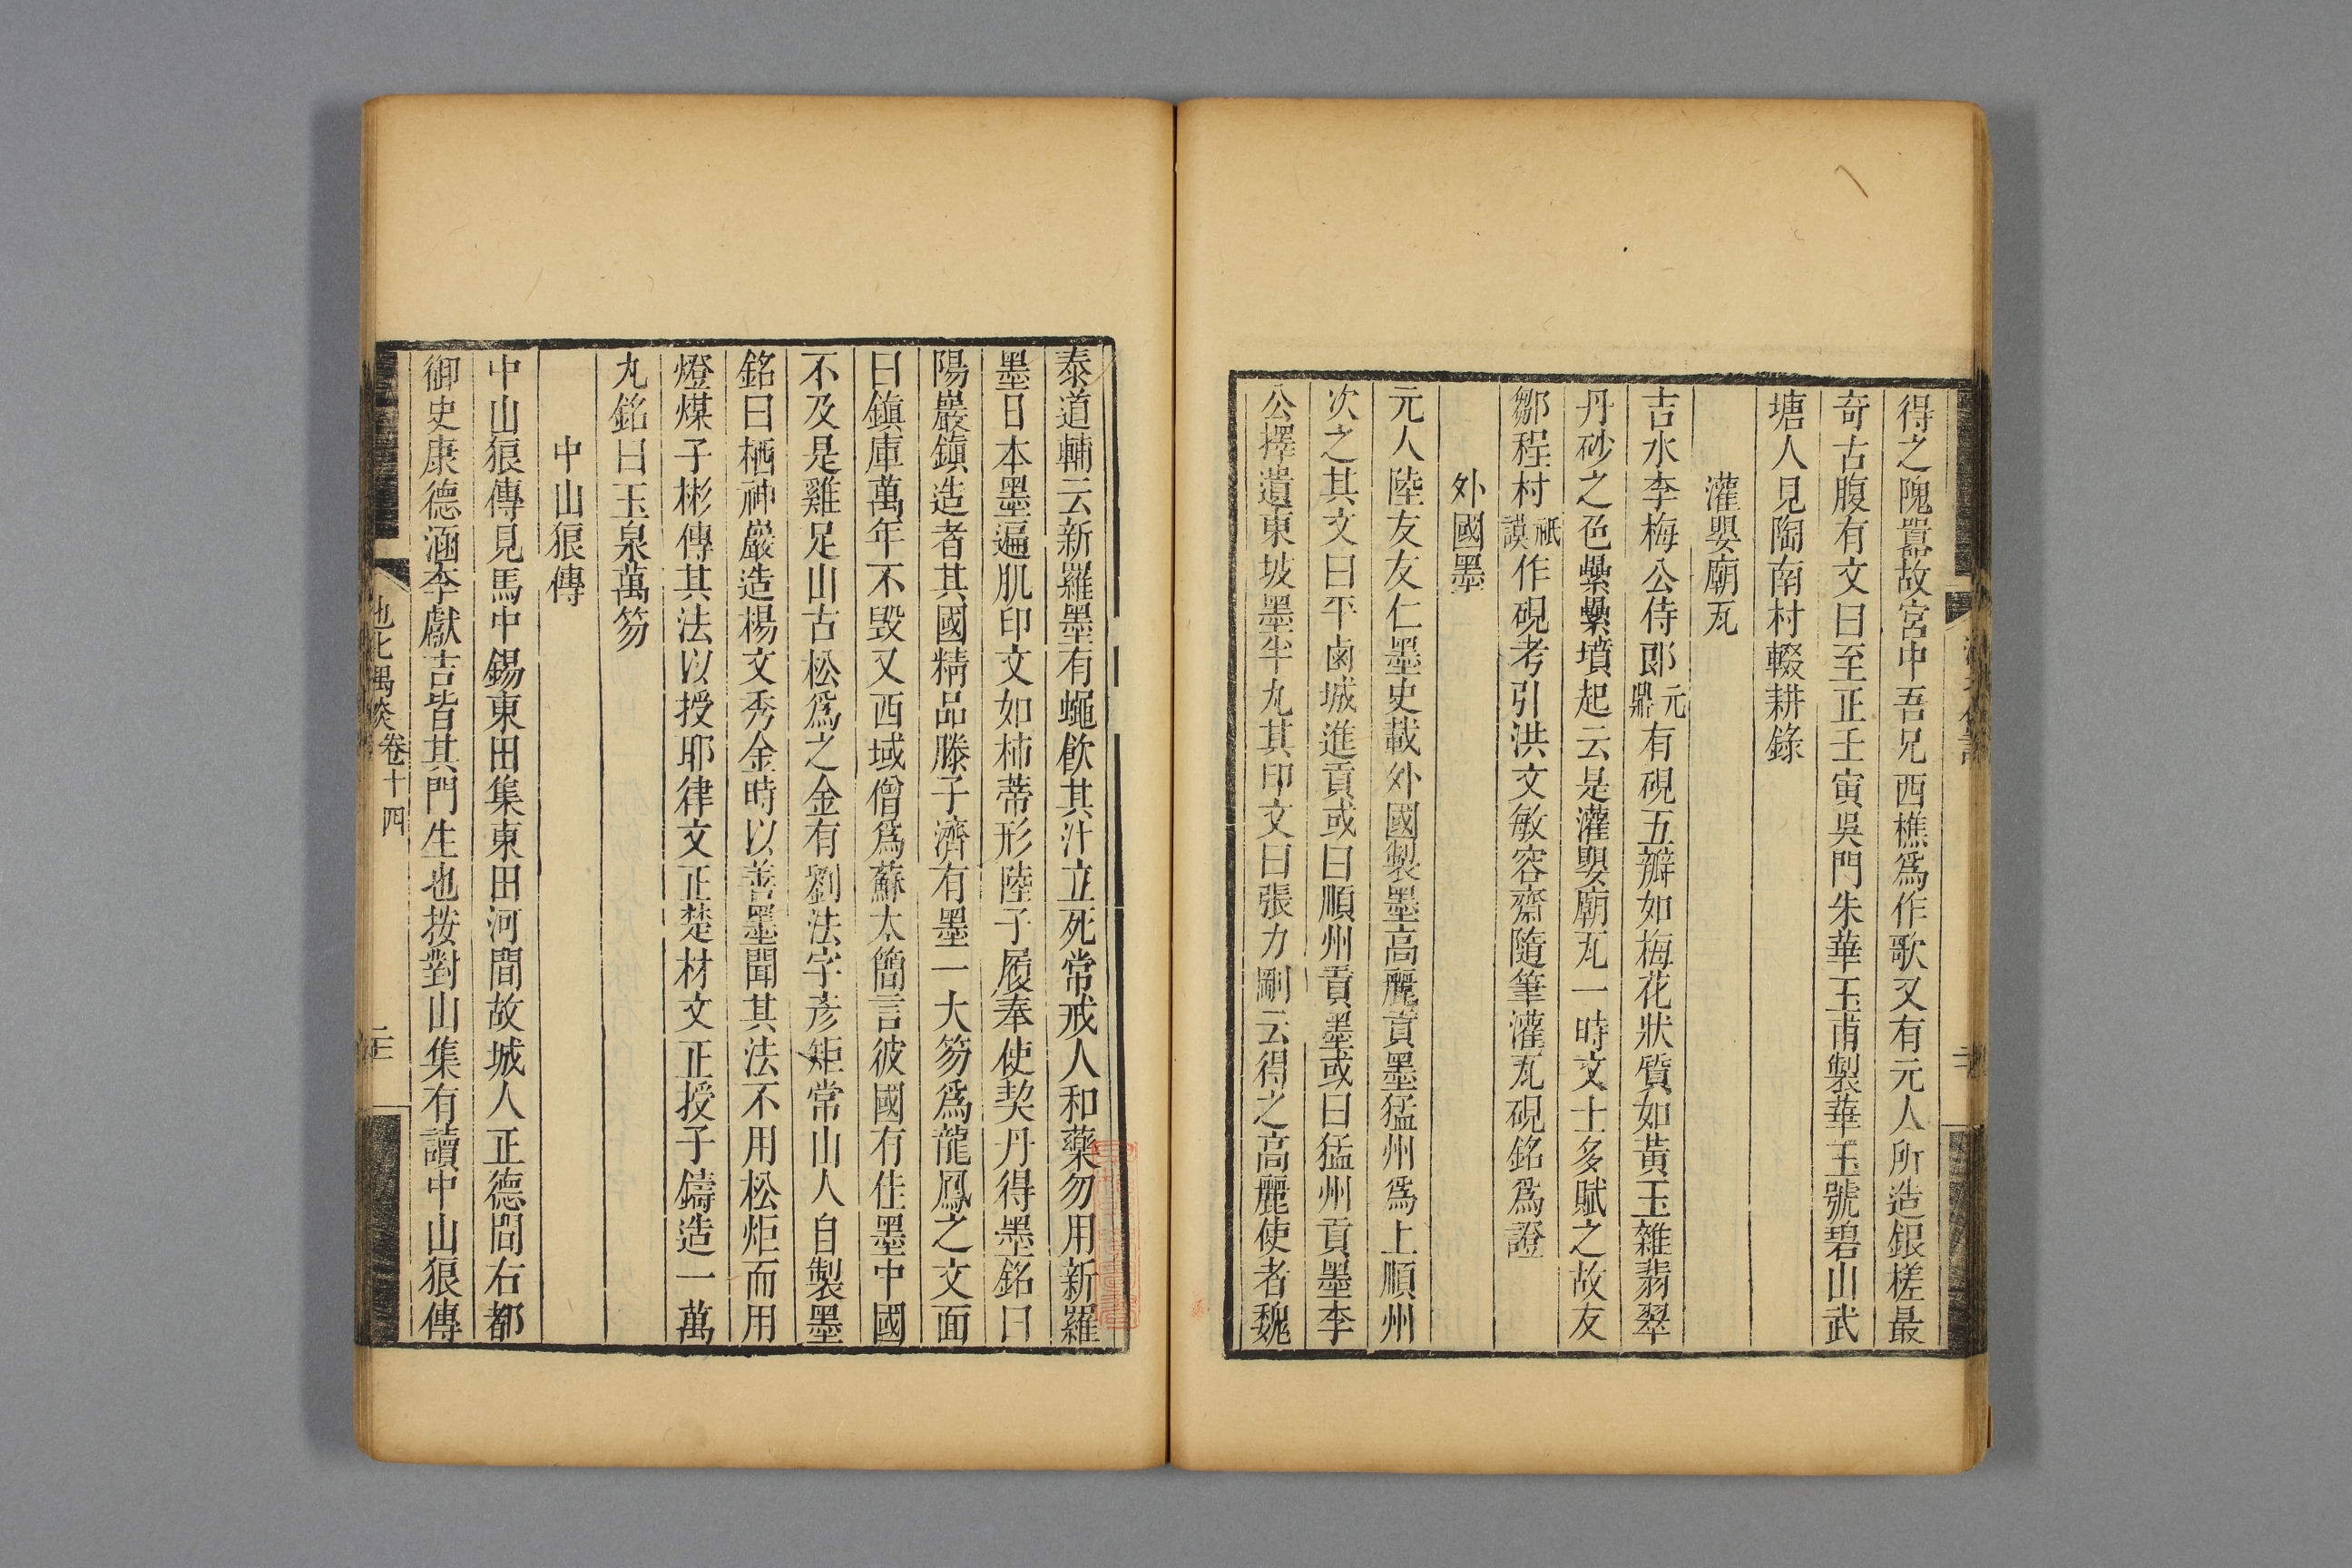 得之隗囂故宮中吾兄西樵爲作歌又有元人所造銀槎最
奇古腹有文曰至正壬寅吳門朱華玉甫製華玉號碧山武
塘人見陶南村輟耕錄
灌嬰廟瓦
吉水李梅公侍郎元鼎有硯五瓣如梅花狀質如黃玉雜翡翠
丹砂之色纍纍墳起云是灌嬰廟瓦一時文士多賦之故友
鄒程村祗謨作硯考引洪文敏容齋隨筆灌瓦硯銘爲證
外國墨
元人陸友友仁墨史載外國製墨高麗貢墨猛州爲上順州
次之其文曰平鹵城進貢或曰順州貢墨或曰猛州貢墨李
公擇遺東坡墨半丸其印文曰張力剛云得之高麗使者魏
泰道輔云新羅墨有蠅飲其汁立死常戒人和藥勿用新羅
墨日本墨遍肌印文如柿蒂形陸子履奉使契丹得墨銘曰
陽巖鎮造者其國精品滕子濟有墨一大笏爲龍鳳之文面
曰鎮庫萬年不毀又西域僧爲蘇太簡言彼國有佳墨中國
不及是雞足山古松爲之金有劉法字彥矩常山人自製墨
銘曰栖神巖造楊文秀金時以善墨聞其法不用松炬而用
燈煤子彬傳其法以授耶律文正楚材文正授子鑄造一萬
丸銘曰玉泉萬笏
中山狼傳
中山狼傳見馬中錫東田集東田河間故城人正德間右都
御史康德涵李獻吉皆其門生也按對山集有讀中山狼傳
池北偶談 卷十四